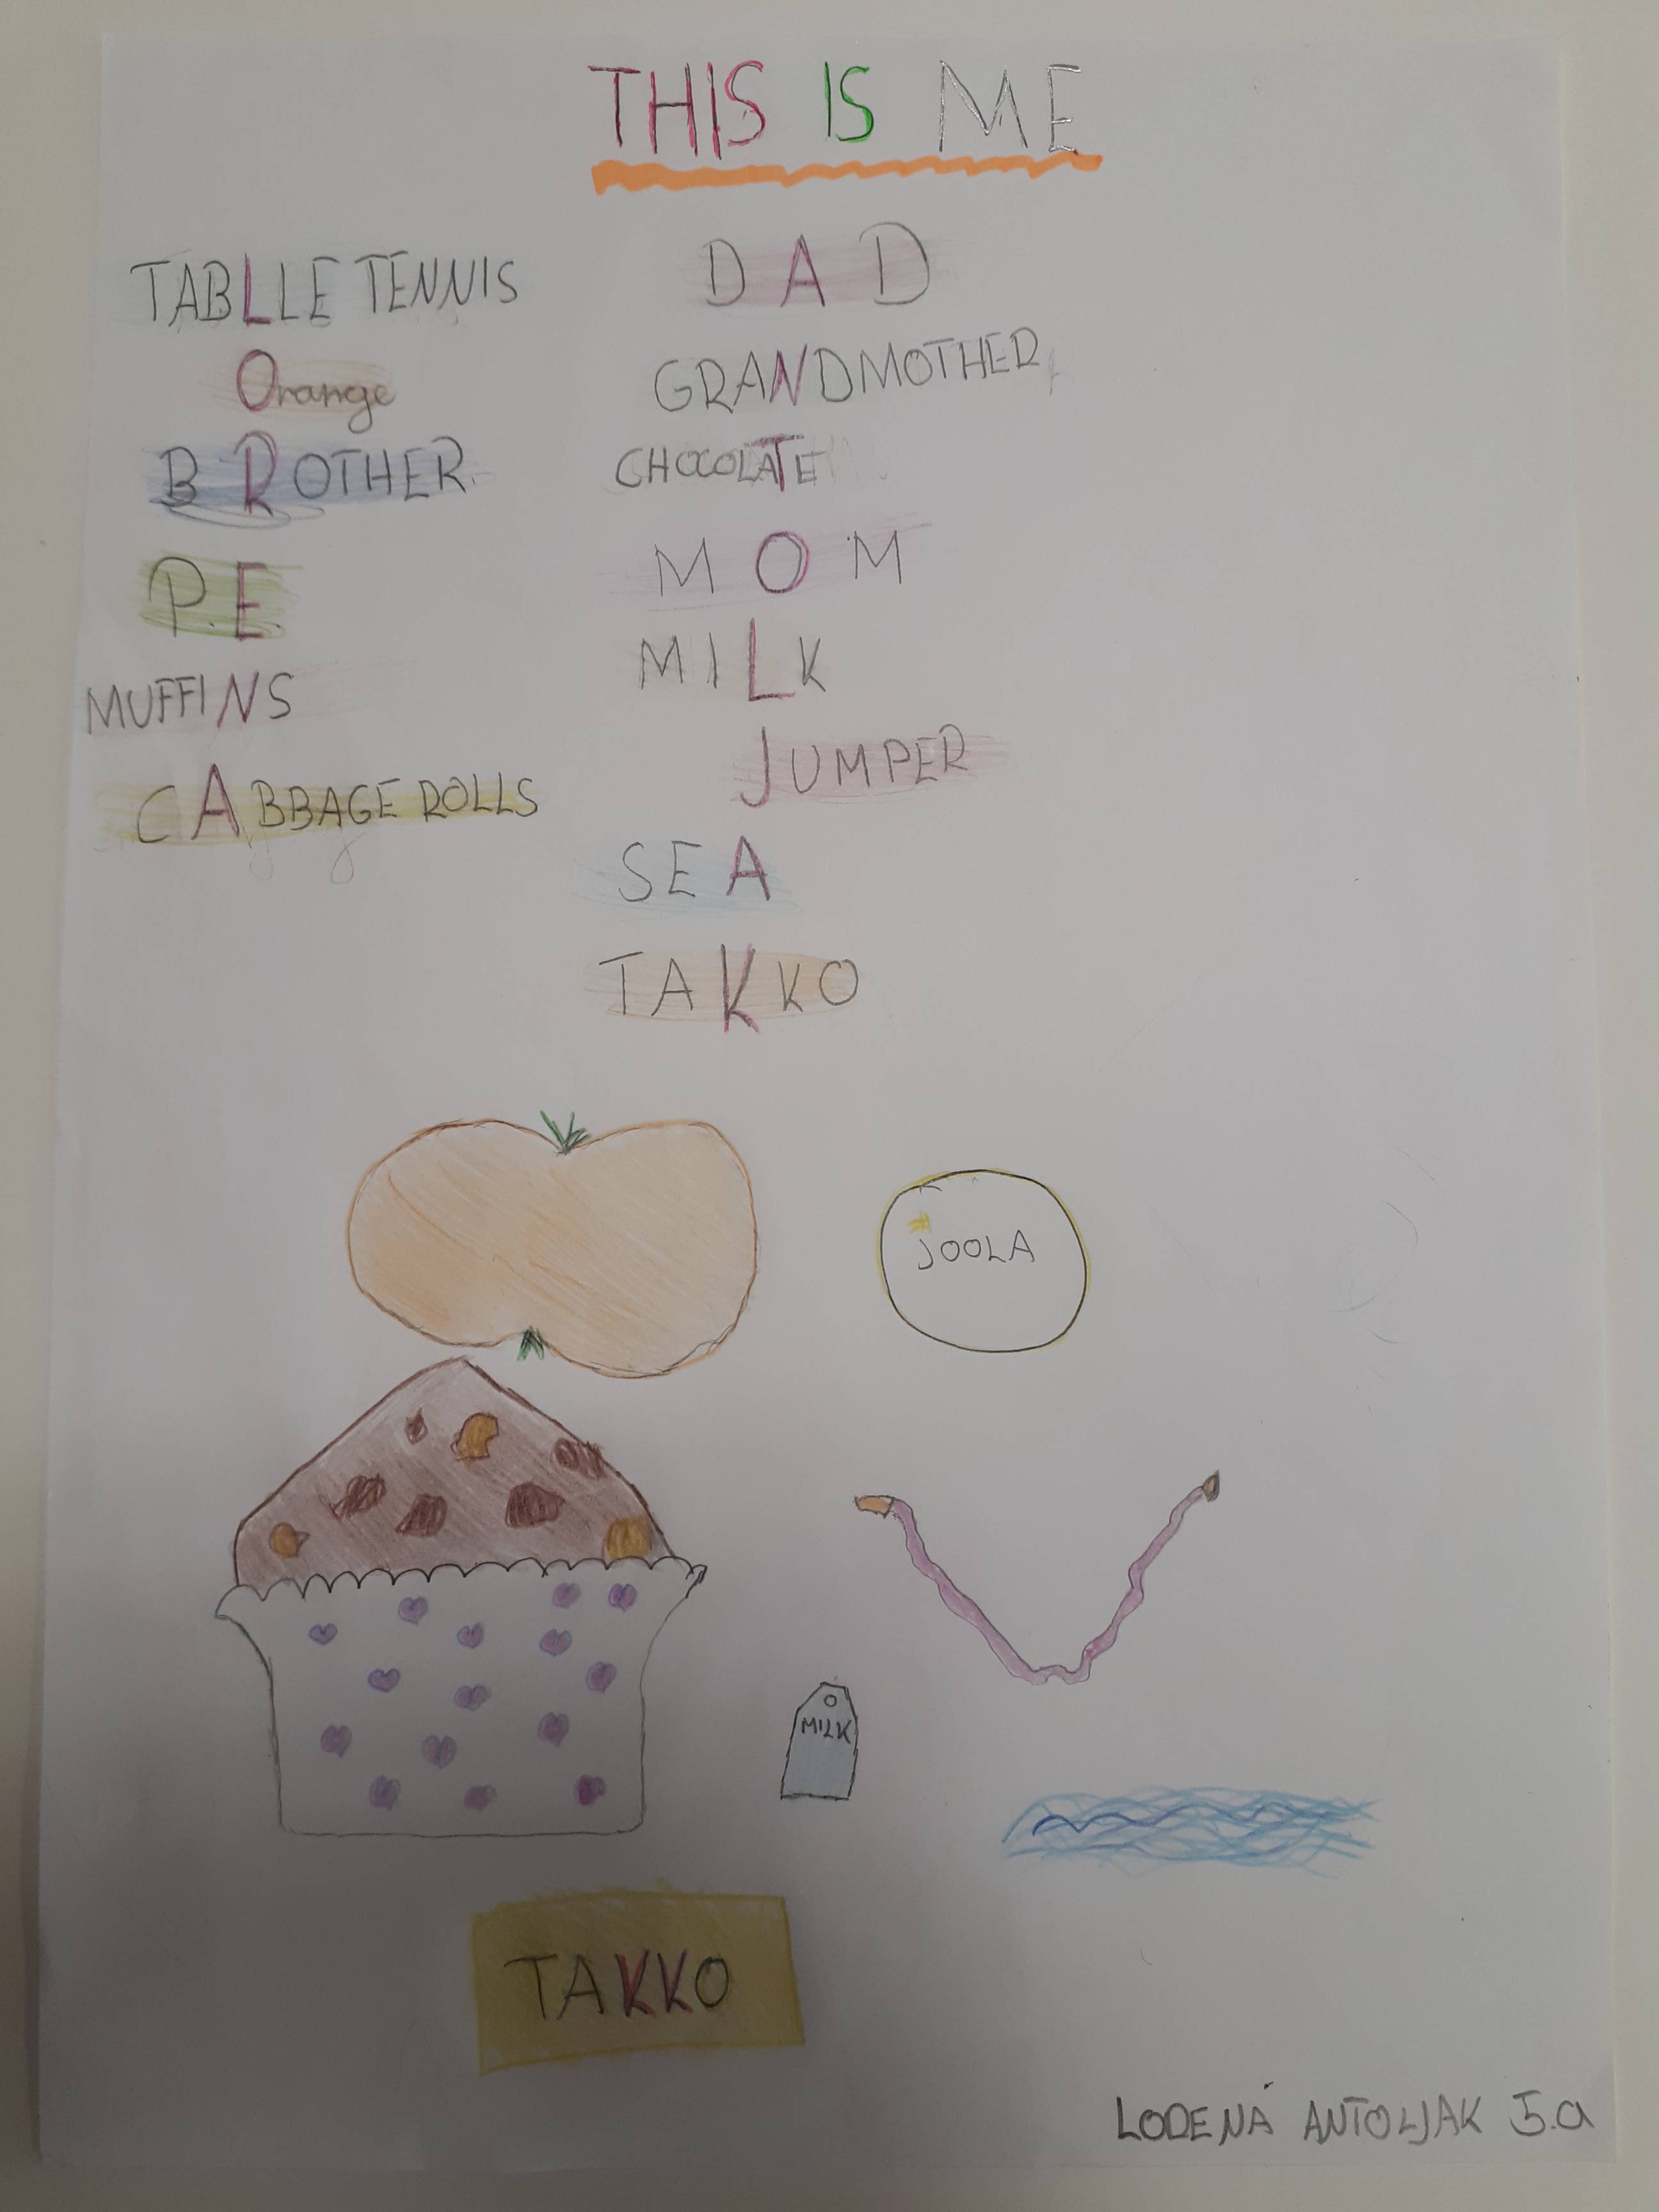 THIS IS ME
TABLLE TENNIS
Orange
BROTHER
P.E.
MUFFINS
CABBAGE ROLLS
DAD
GRANDMOTHER
CHOCOLATE
MOM
MILK
JUMPER
SEA
TAKKO
JOOLA
MILK
TAKKO
LORENA ANTOLJAK 5.a